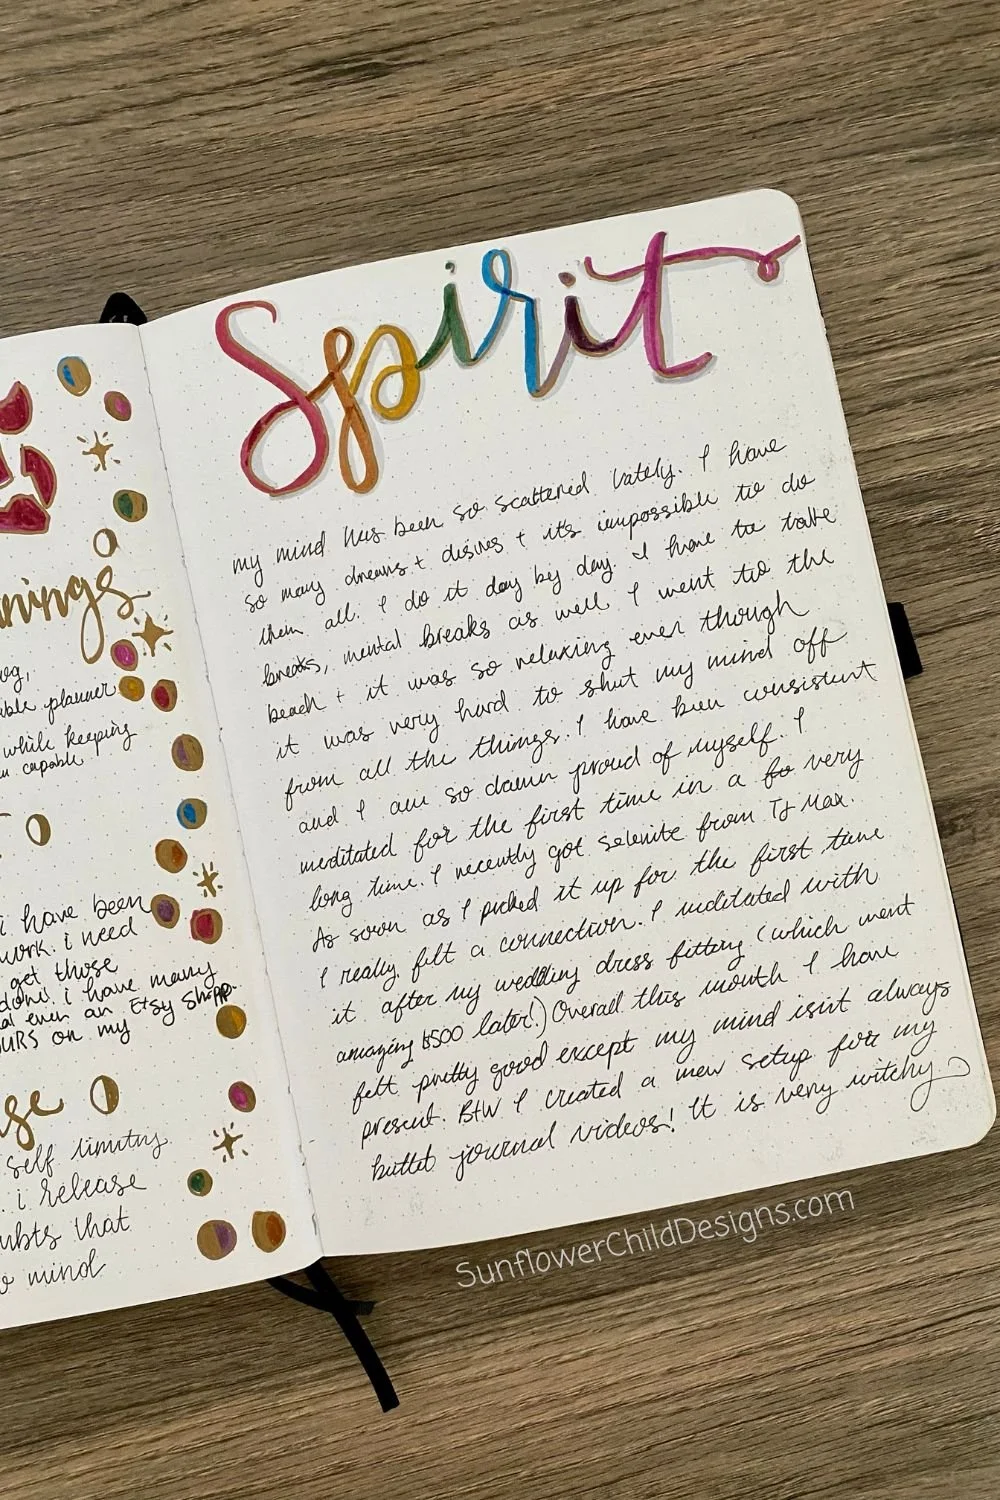 nings
og,
ble planner
while keeping
capable
i have been
work. i need
get those
done. i have many
al even an Etsy Shopp.
URS on my
ge
self limiting
. i release
ubts that
o mind
Spirit
my mind has been so scattered lately. I have
so many dreams + desires + it's impossible to do
them all. I do it day by day. I have to take
breaks, mental breaks as well. I went to the
beach + it was so relaxing even though
it was very hard to shut my mind off
from all the things. I have been consistent
and I am so damn proud of myself. I
meditated for the first time in a very
long time. I recently got selenite from TJ Max.
As soon as I picked it up for the first time
I really felt a connection. I meditated with
it after my wedding dress fitting (which went
amazing $500 later!) Overall this month I have
felt pretty good except my mind isn't always
present. BTW I created a new setup for my
bullet journal videos! It is very witchy
SunflowerChildDesigns.com